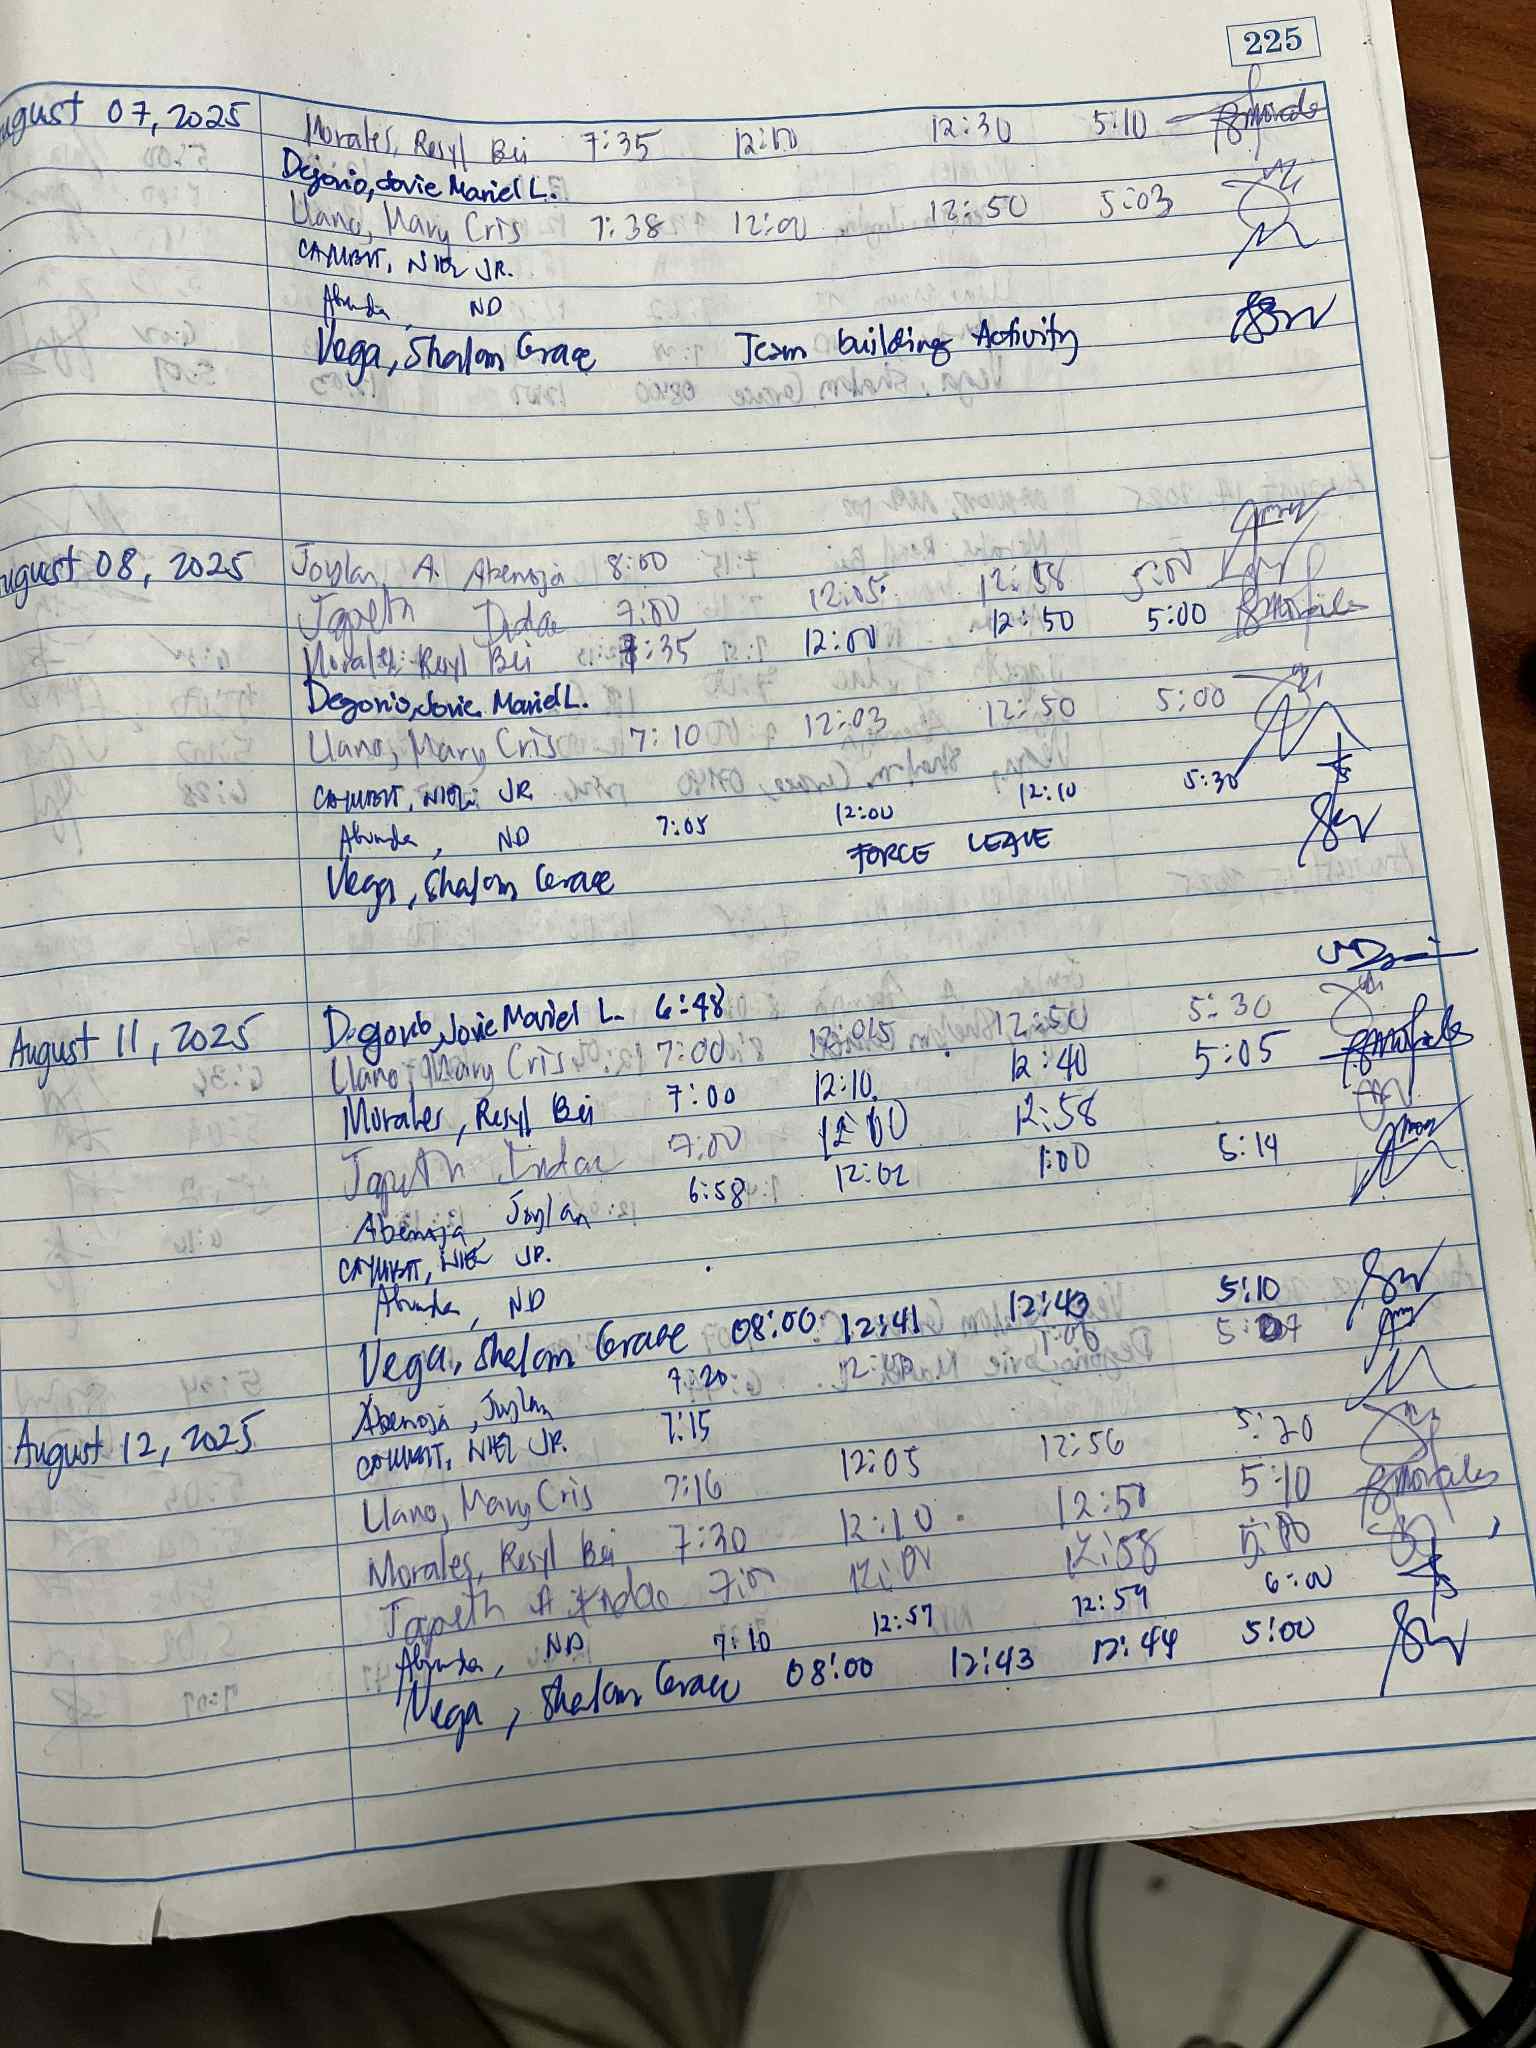 225
August 07, 2025 Morales, Resyl Bei 7:35 12:00 12:30 5:10
Degorio, Jovie Mariel L.
Llano, Mary Cris 7:38 12:00 12:50 5:03
CAYUBIT, NIEL JR.
Abunda, ND
Vega, Shalom Grace Team building Activity
August 08, 2025 Joylan A. Abenoja 8:00
Japeth Indac 7:00 12:05 12:58 5:00
Morales, Resyl Bei 7:35 12:00 12:50 5:00
Degorio, Jovie Mariel L.
Llano, Mary Cris 7:10 12:03 12:50 5:00
CAYUBIT, NIEL JR.
Abunda, ND 7:05 12:00 12:10 5:30
Vega, Shalom Grace FORCE LEAVE
August 11, 2025 Degorio, Jovie Mariel L. 6:48
Llano, Mary Cris 7:00 12:05 12:50 5:30
Morales, Resyl Bei 7:00 12:10 12:40 5:05
Japeth Indac 7:00 12:00 12:58
Abenoja, Joylan 6:58 12:02 1:00 5:14
CAYUBIT, NIEL JR.
Abunda, ND
Vega, Shalom Grace 08:00 12:41 12:43 5:10
August 12, 2025 Abenoja, Joylan 7:20 5:07
CAYUBIT, NIEL JR. 7:15
Llano, Mary Cris 7:16 12:05 12:56 5:20
Morales, Resyl Bei 7:30 12:10 12:50 5:10
Japeth A. Indac 7:00 12:00 12:58
Abunda, ND 7:10 12:57 12:59 6:00
Vega, Shalom Grace 08:00 12:43 12:44 5:00